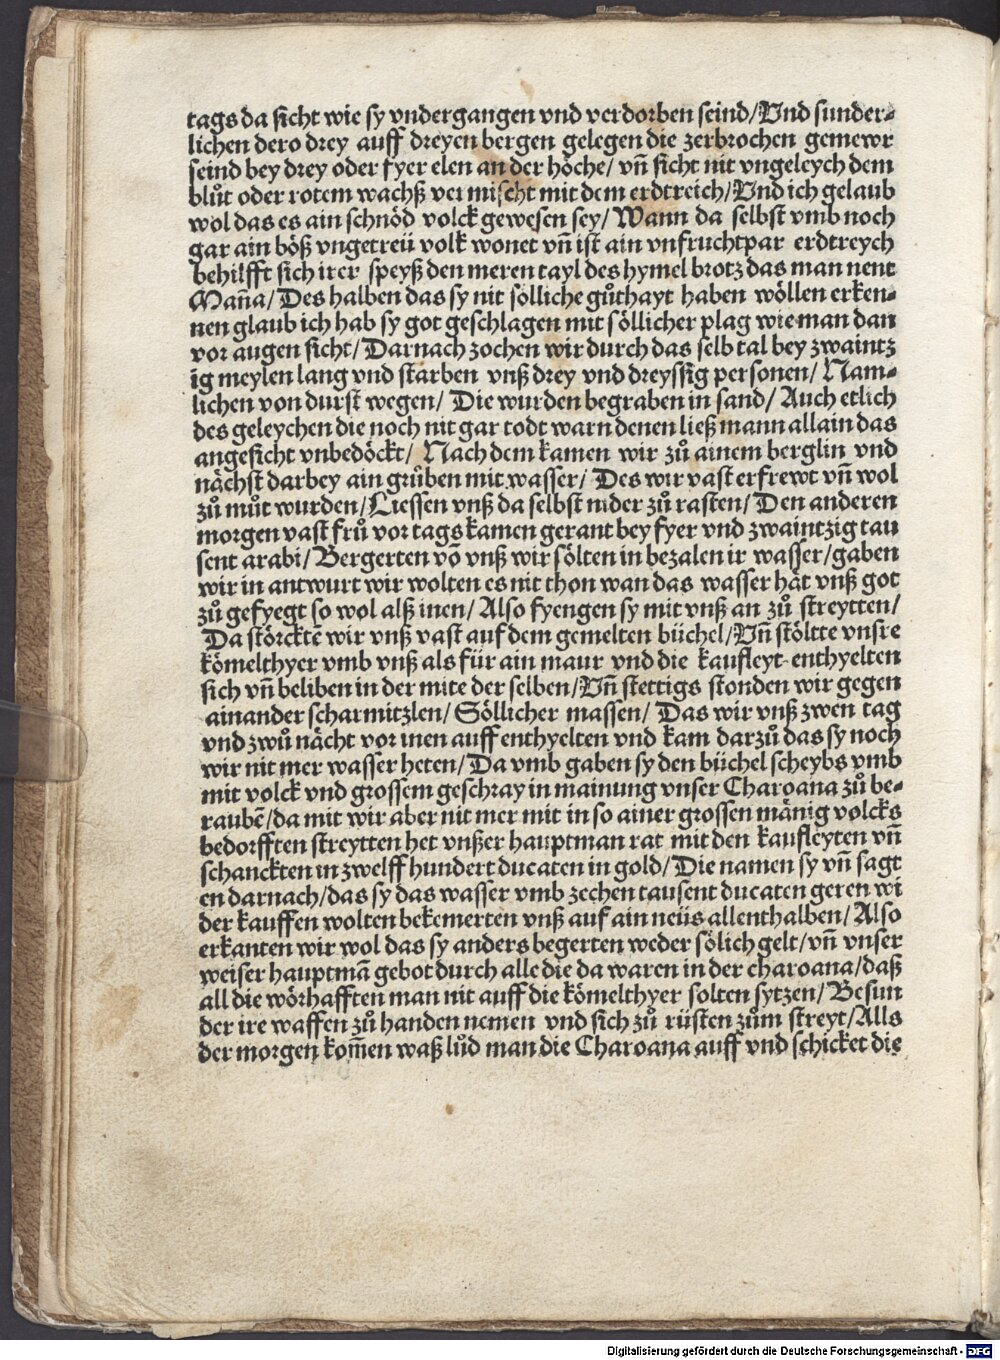 tags da sicht wie sy vndergangen vnd verdorben seind/Vnd sunder-
lichen dero drey auff dreyen bergen gelegen die zerbrochen gemewr
seind bey drey oder fyer elen an der höche/ vn̄ sicht nit vngeleych dem
blůt oder rotem wachß vermischt mit dem erdtreich/Vnd ich gelaub
wol das es ain schnöd volck gewesen sey/ Wann da selbst vmb noch
gar ain böß vngetreü volk wonet vn̄ ist ain vnfruchtpar erdtreych
behilfft sich irer speyß den meren tayl des hymel brotz das man nent
Man̄a/ Des halben das sy nit sölliche gůthayt haben wöllen erken-
nen glaub ich hab sy got geschlagen mit söllicher plag wie man dan
vor augen sicht/ Darnach zochen wir durch das selb tal bey zwaintz
ig meylen lang vnd starben vnß drey vnd dreyssig personen/ Nam-
lichen von durst wegen/ Die wurden begraben in sand/ Auch etlich
des geleychen die noch nit gar todt warn denen ließ mann allain das
angesicht vnbedöckt/ Nach dem kamen wir zů ainem berglin vnd
nächst darbey ain grůben mit wasser/ Des wir vast erfrewt vn̄ wol
zů můt wurden/ Liessen vnß da selbst nider zů rasten/ Den anderen
morgen vast frů vor tags kamen gerant bey fyer vnd zwaintzig tau
sent arabi/ Bergerten vō vnß wir sölten in bezalen ir wasser/gaben
wir in antwurt wir wolten es nit thon wan das wasser hät vnß got
zů gefyegt so wol alß inen/ Also fyengen sy mit vnß an zů streytten/
Da störcktē wir vnß vast auf dem gemelten büchel/Vn̄ stöltte vnsre
kömelthyer vmb vnß als für ain maur vnd die kaufleyt enthyelten
sich vn̄ beliben in der mite der selben/Vn̄ stettigs stonden wir gegen
ainander scharmitzlen/ Söllicher massen/ Das wir vnß zwen tag
vnd zwů nächt vor inen auff enthyelten vnd kam darzů das sy noch
wir nit mer wasser heten/ Da vmb gaben sy den büchel scheybs vmb
mit volck vnd grossem geschray in mainung vnser Charoana zů be-
raubē/da mit wir aber nit mer mit in so ainer grossen mänig volcks
bedorfften streytten het vnßer hauptman rat mit den kaufleyten vn̄
schanckten in zwelff hundert ducaten in gold/ Die namen sy vn̄ sagt
en darnach/das sy das wasser vmb zechen tausent ducaten geren wi
der kauffen wolten bekemerten vnß auf ain neüs allenthalben/ Also
erkanten wir wol das sy anders begerten weder sölich gelt/ vn̄ vnser
weiser hauptmā gebot durch alle die da waren in der charoana/daß
all die wörhafften man nit auff die kömelthyer solten sytzen/ Besun
der ire waffen zů handen nemen vnd sich zů rüsten zům streyt/Alls
der morgen kom̄en waß lůd man die Charoana auff vnd schicket die
Digitalisierung gefördert durch die Deutsche Forschungsgemeinschaft - DFG